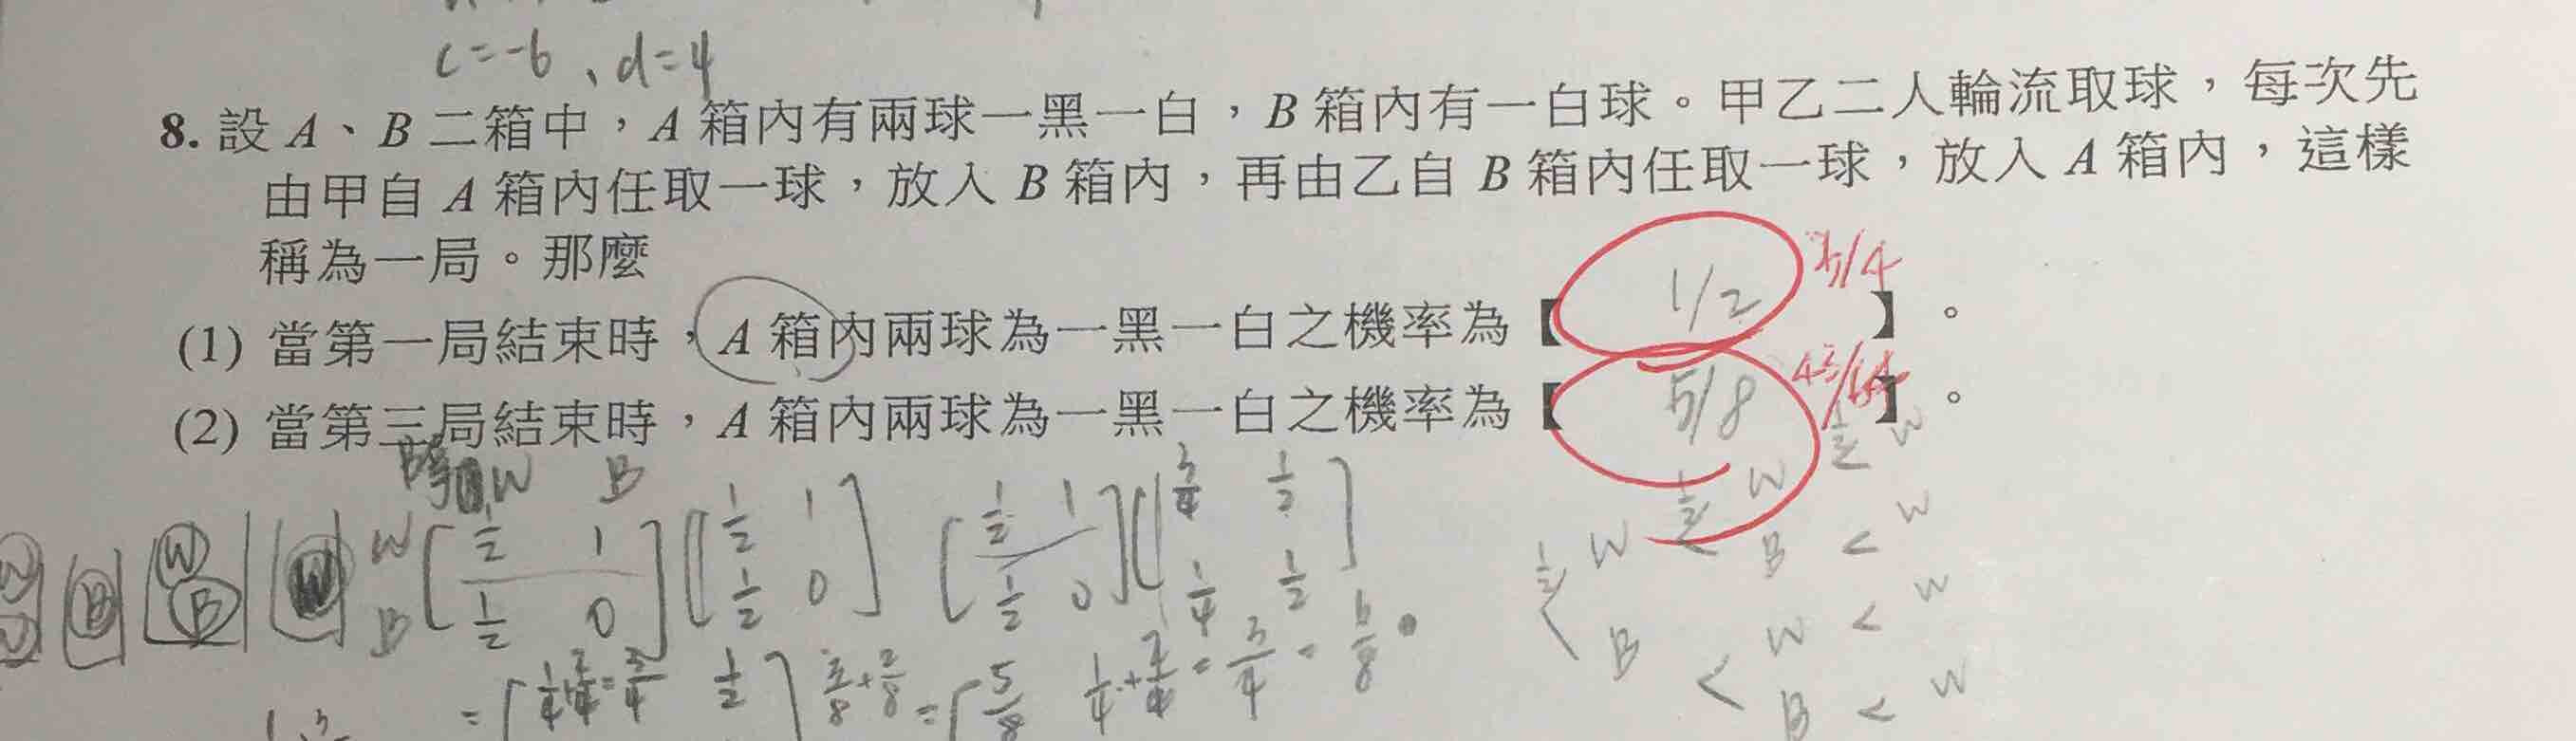 c=-6、d=4
8. 設 A、B 二箱中，A 箱內有兩球一黑一白，B 箱內有一白球。甲乙二人輪流取球，每次先
由甲自 A 箱內任取一球，放入 B 箱內，再由乙自 B 箱內任取一球，放入 A 箱內，這樣
稱為一局。那麼
3/4
(1) 當第一局結束時，A 箱內兩球為一黑一白之機率為【 1/2 】。
(2) 當第三局結束時，A 箱內兩球為一黑一白之機率為【 5/8 】。
43/64
W B
W [ 1/2 1 ] [ 1/2 1 ] [ 1/2 1 ] [ 3/4 1/2 ]
B [ 1/2 0 ] [ 1/2 0 ] [ 1/2 0 ] [ 1/4 1/2 ]
= [ 1/4+2/4=3/4 1/2 ] 3/8+2/8 = [ 5/8 1/4+2/4=3/4=6/8
1/2 W
1/2 W
1/2 W < B < W
B < W < W
B < W